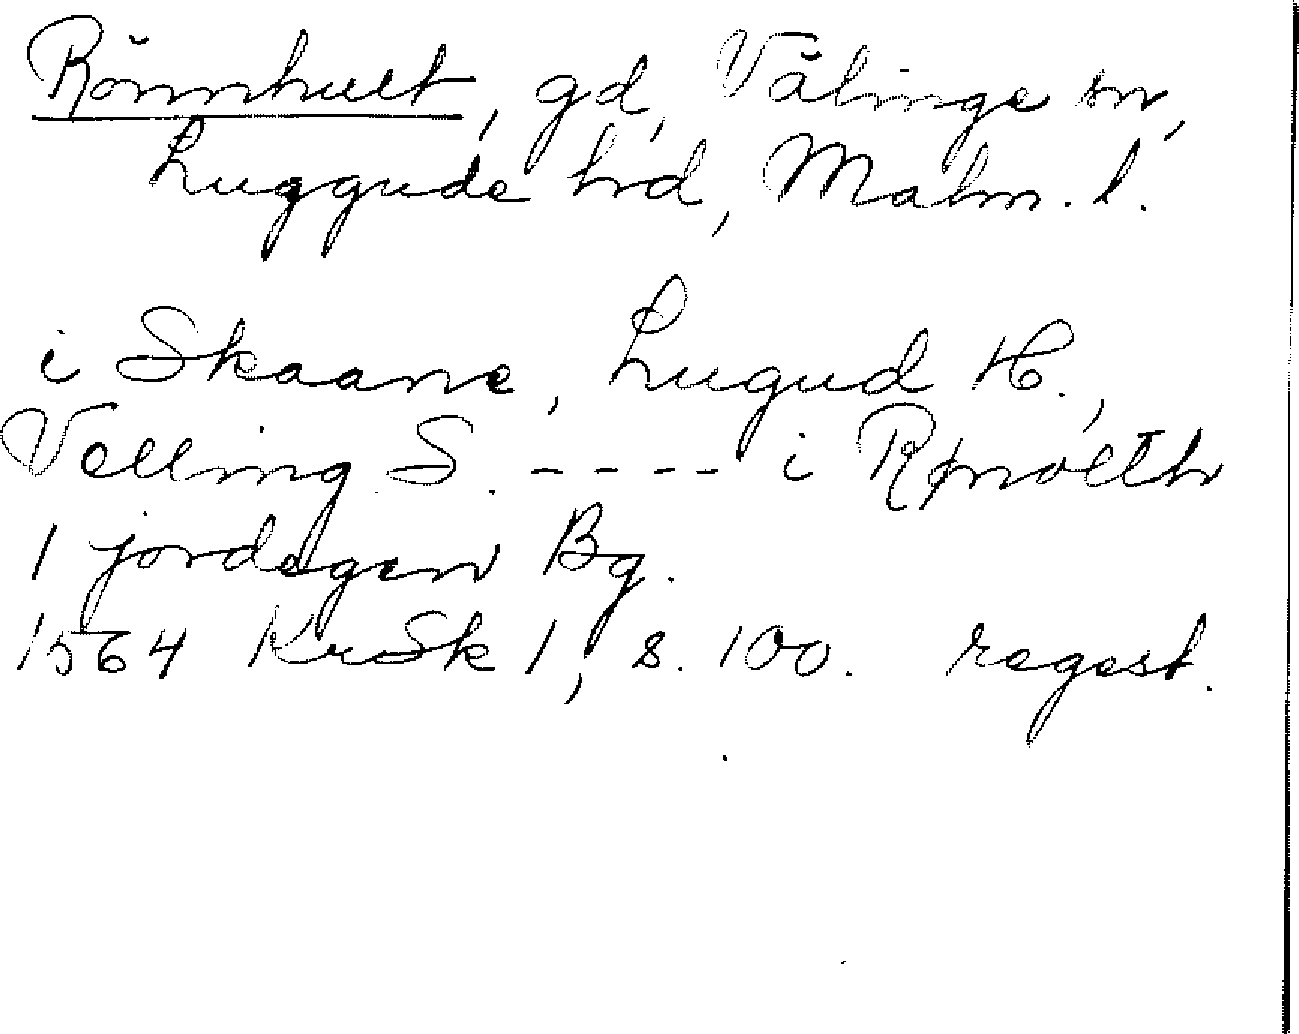 Rönnhult, gd, Välinge sn,
Luggude hrd, Malm. l.
i Skaane, Lugud H.,
Velling S. - - - - i Rønolth
1 jordegen Bg.
1564 KrSk 1, s. 100. regest.